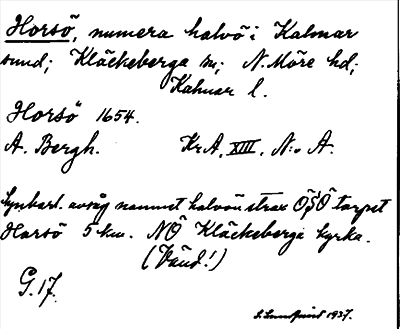 Horsö, numera halvö i Kalmar
sund; Kläckeberga sn; N. Möre hd;
Kalmar l.
Horsö 1654.
A. Bergh. Kr.A, XIII, N:o A.
avsåg namnet halvön strax ÖSÖ torpet
Horsö 5 km. NÖ Kläckeberga kyrka.
(Vänd!)
G. 17.
1937.